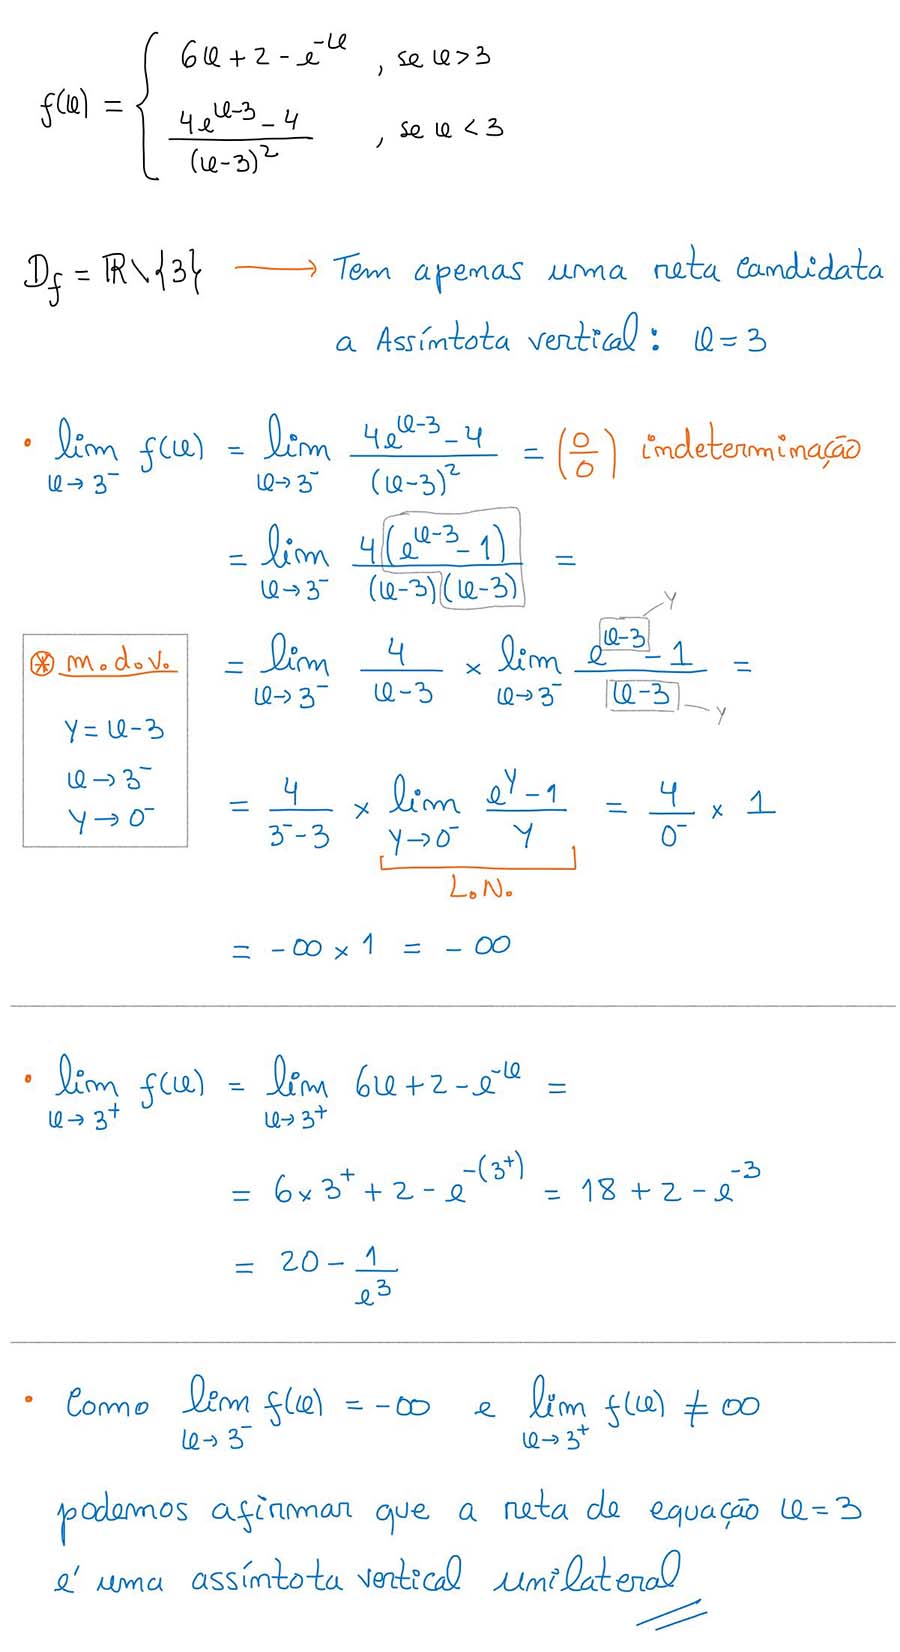 f(x) = { 6x + 2 - e^{-x} , se x > 3
(4e^{x-3} - 4)/(x-3)^2 , se x < 3
D_f = ℝ\{3} ⟶ Tem apenas uma reta candidata
a Assíntota vertical: x = 3
• lim_{x→3⁻} f(x) = lim_{x→3⁻} (4e^{x-3} - 4)/(x-3)^2 = (0/0) indeterminação
= lim_{x→3⁻} 4(e^{x-3} - 1)/((x-3)(x-3)) =
y
= lim_{x→3⁻} 4/(x-3) × lim_{x→3⁻} (e^{x-3} - 1)/(x-3) =
y
⊛ m.d.v.
y = x-3
x → 3⁻
y → 0⁻
= 4/(3⁻-3) × lim_{y→0⁻} (e^y - 1)/y = 4/0⁻ × 1
L.N.
= -∞ × 1 = -∞
• lim_{x→3⁺} f(x) = lim_{x→3⁺} 6x + 2 - e^{-x} =
= 6×3⁺ + 2 - e^{-(3⁺)} = 18 + 2 - e^{-3}
= 20 - 1/e^3
• Como lim_{x→3⁻} f(x) = -∞ e lim_{x→3⁺} f(x) ≠ ∞
podemos afirmar que a reta de equação x = 3
é uma assíntota vertical unilateral